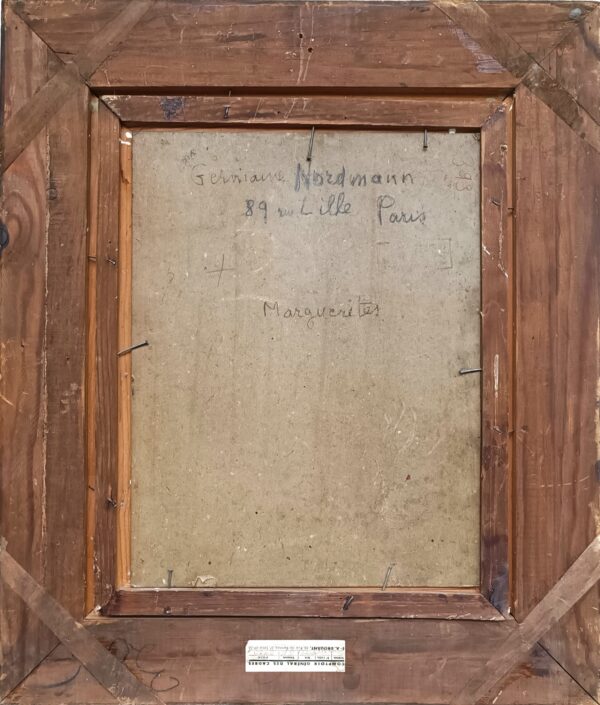 Germaine Nordmann
89 rue Lille Paris
Marguerites
COMPTOIR GÉNÉRAL DES CADRES
P.-A. DROUANT